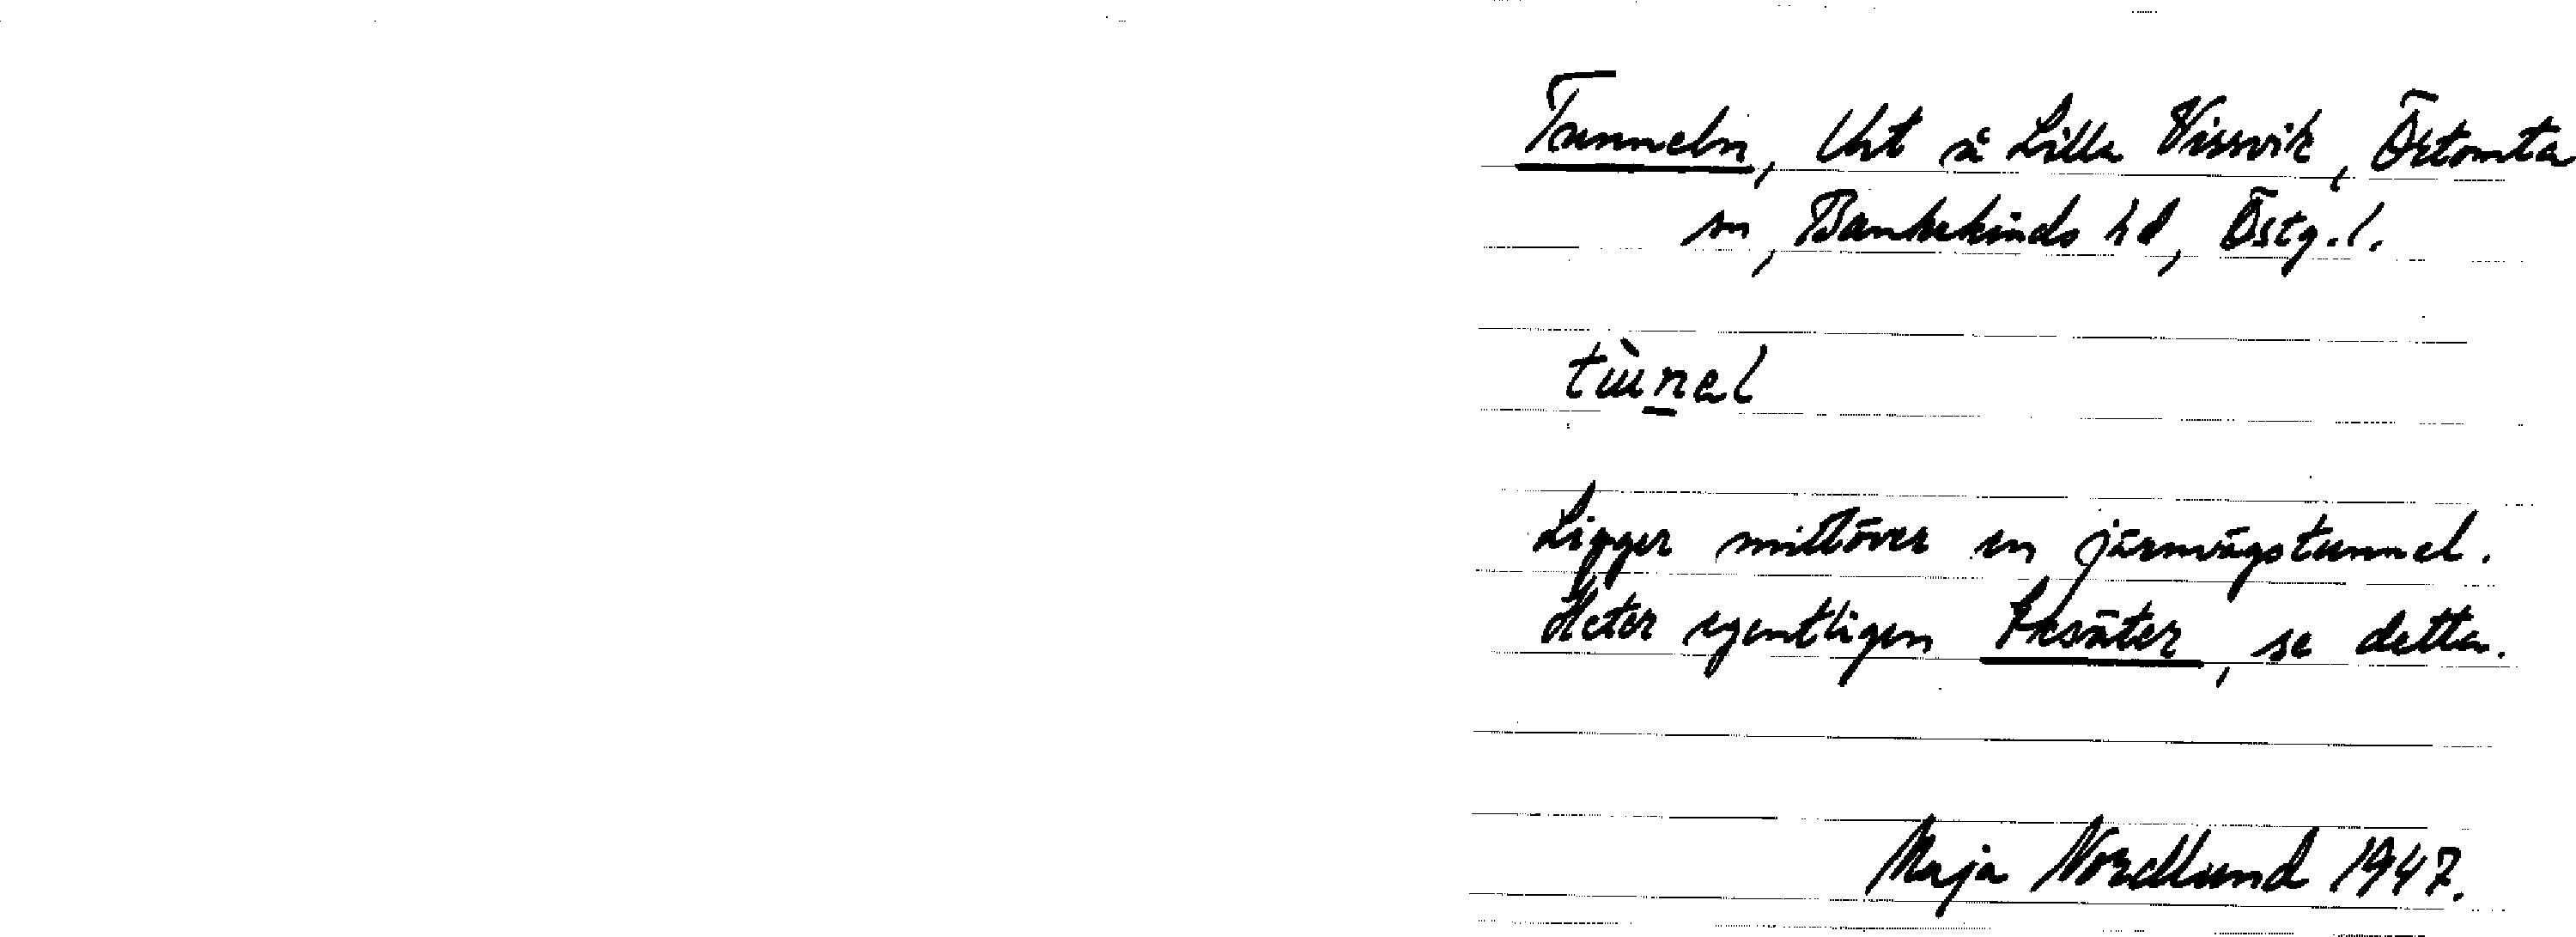 Tunneln, Uht å Lilla Vissvik, Örtomta
sn, Bankekinds hd, Östg.l.
tùnel
Ligger mittöver en järnvägstunnel.
Heter egentligen Eksäter, se detta.
Maja Nordlund 1947.